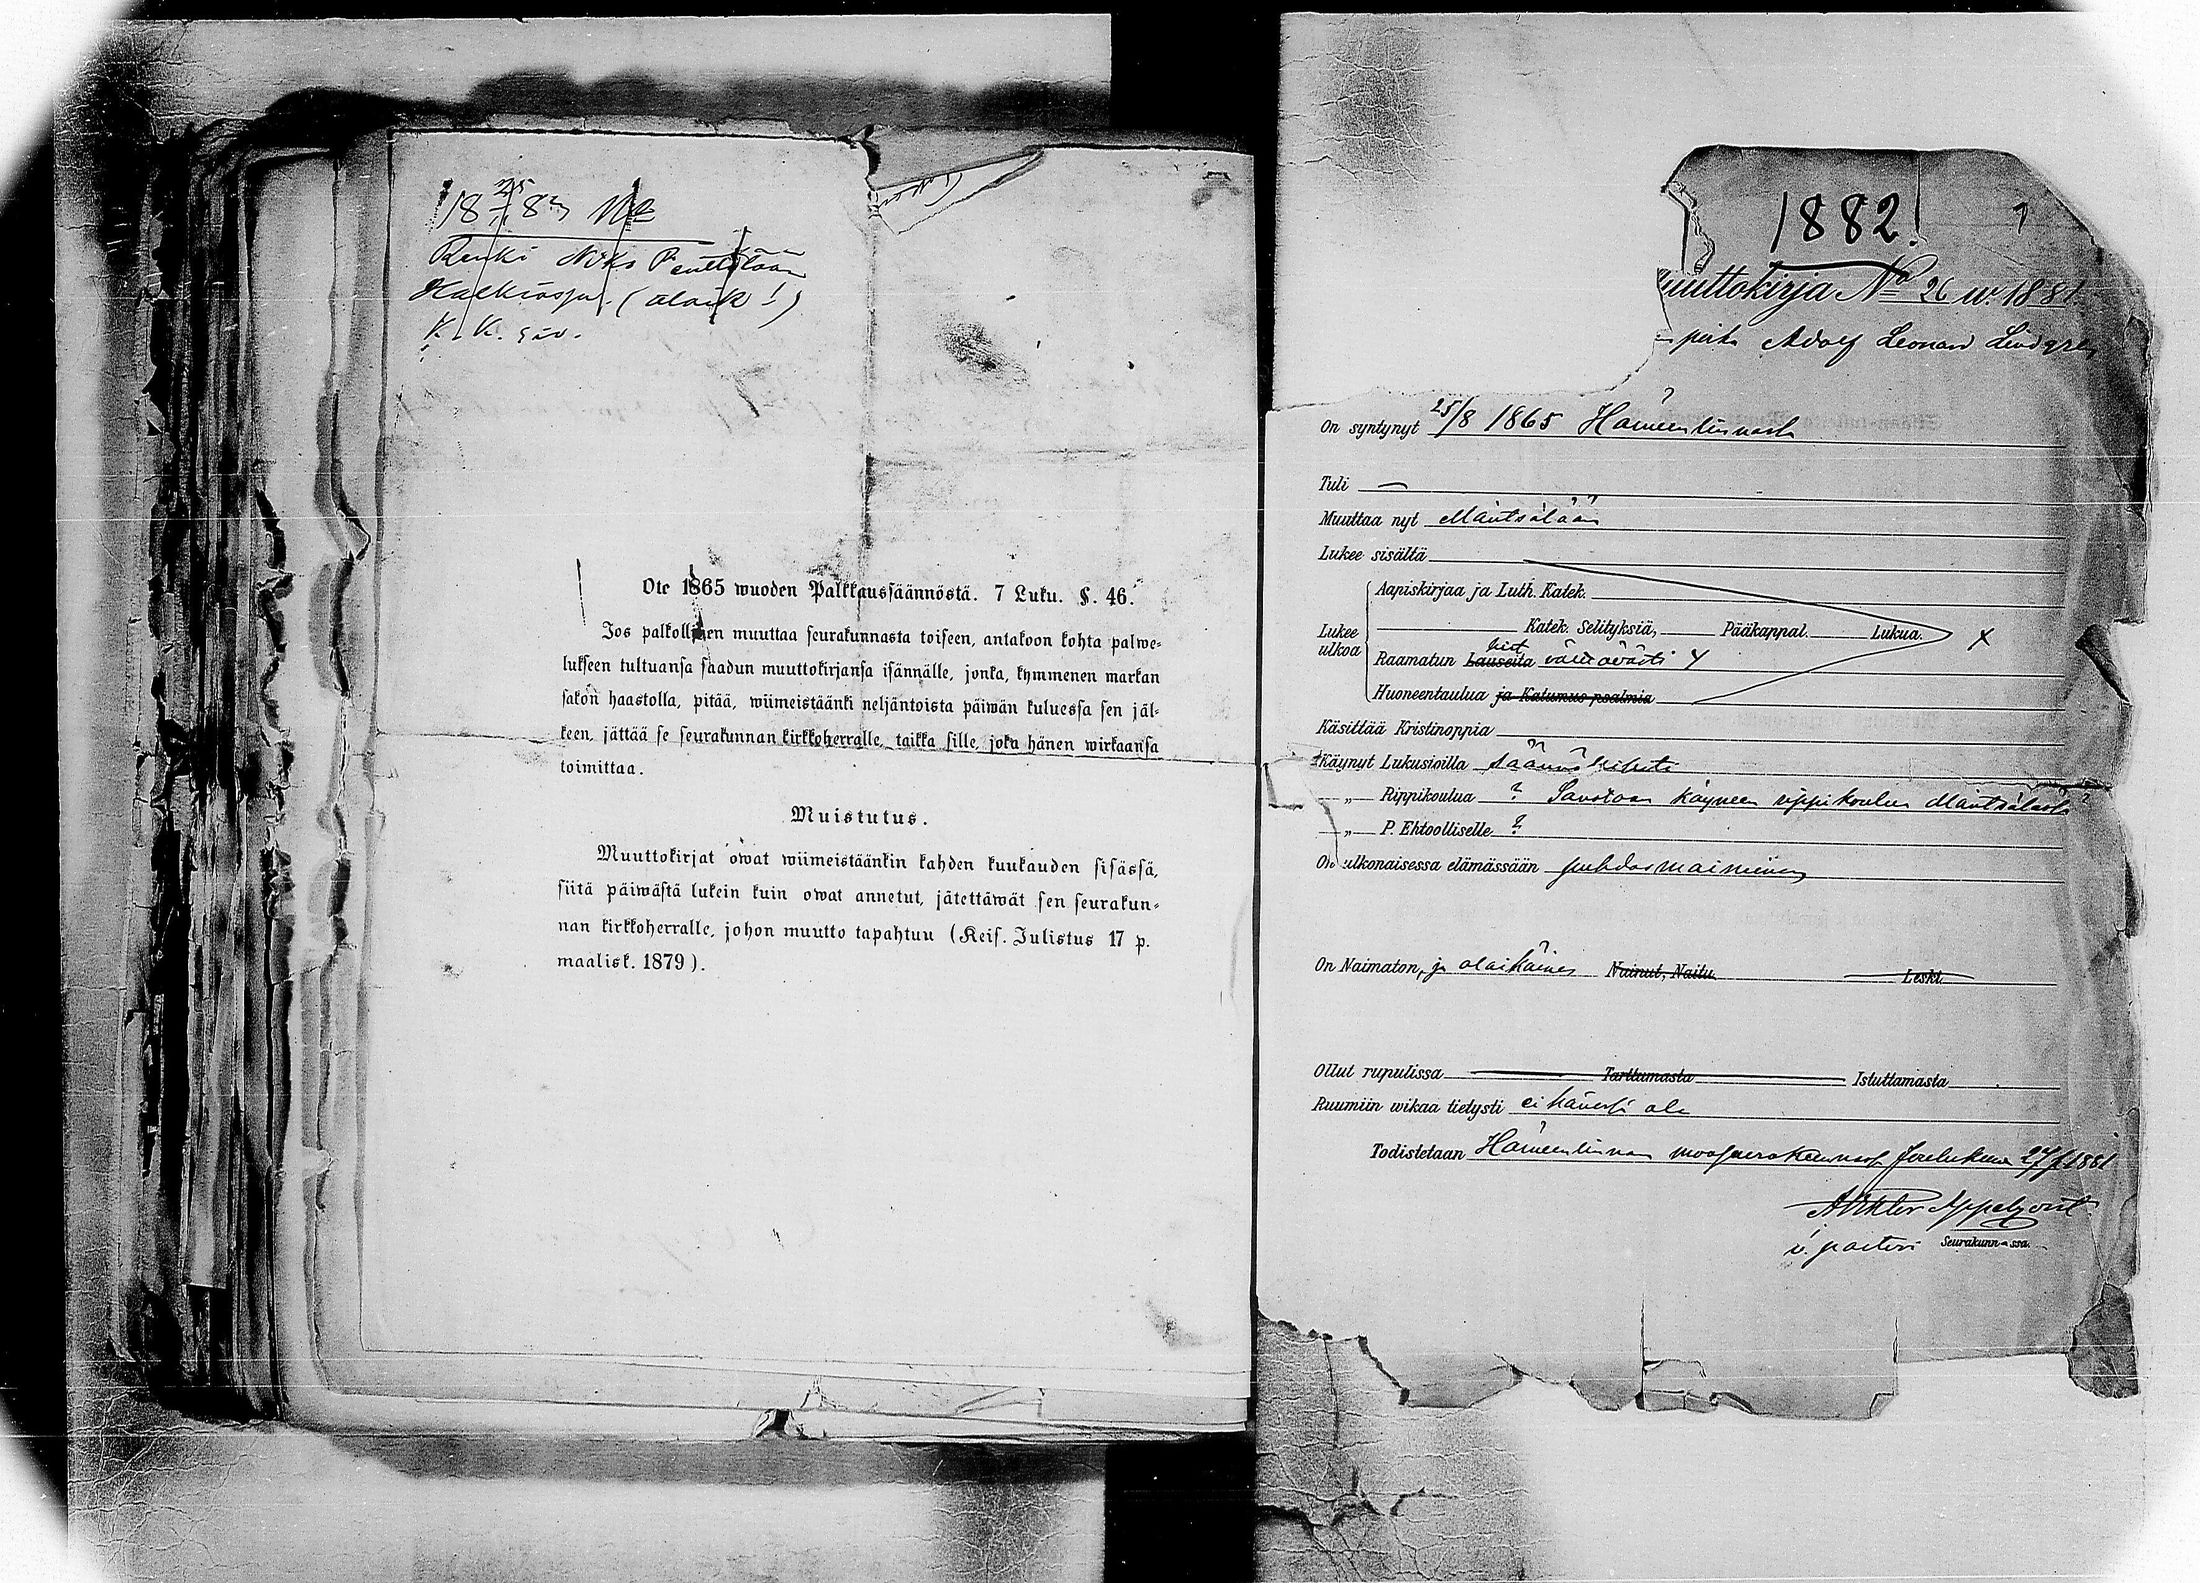 Renki
K. K.
Ote 1865 wuoden Palkkaussäännöstä. 7 Luku. §. 46.
Jos palkollinen muuttaa seurakunnasta toiseen, antakoon kohta palwe=
lukseen tultuansa saadun muuttokirjansa isännälle, jonka, kymmenen markan
sakon haastolla, pitää, wiimeistäänki neljäntoista päiwän kuluessa sen jäl=
keen, jättää se seurakunnan kirkkoherralle, taikka sille, joka hänen wirkaansa
toimittaa.
Muistutus.
Muuttokirjat owat wiimeistäänkin kahden kuukauden sisässä,
siitä päiwästä lukein kuin owat annetut, jätettäwät sen seurakun=
nan kirkkoherralle, johon muutto tapahtuu (Keis. Julistus 17 p.
maalisk. 1879).
1882!
1
uuttokirja No 26 w. 1881.
Adolf Leonard Lindgren
On syntynyt 25/8 1865 Hämeenlinnasta
Tuli —
Muuttaa nyt Mäntsälään
Lukee sisältä
Lukee ulkoa
Aapiskirjaa ja Luth. Katek.
Katek. Selityksiä, Pääkappal. Lukua. x
Raamatun Lauseita hist välttävästi
Huoneentaulua ja Katumus psalmia
Käsittää Kristinoppia
Käynyt Lukusioilla säännöllisesti
„ Rippikoulua ? Sanotaan käyneen rippikoulun Mäntsälässä ?
„ P. Ehtoolliselle ?
On ulkonaisessa elämässään puhdasmaineinen
On Naimaton, ja alaikäinen Nainut, Naitu Leski
Ollut rupulissa Tarttumasta Istuttamasta
Ruumiin wikaa tietysti ei hänessä ole
Todistetaan Hämeenlinnan maaseurakunnassa Joulukuun 1881
Appelqvist
v. pastori Seurakunn=ssa.